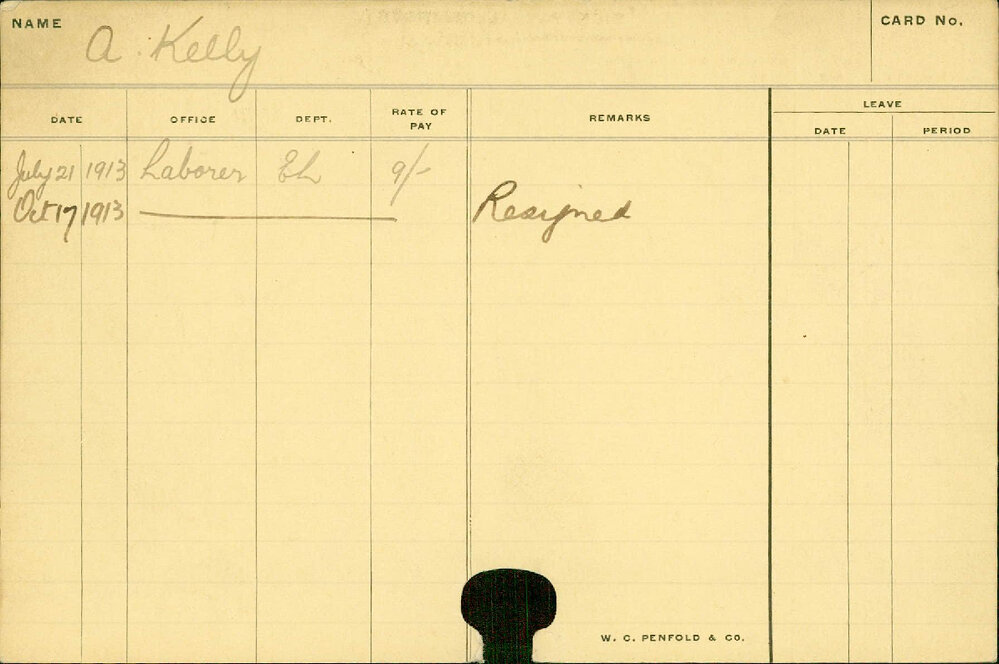 NAME A. Kelly CARD No.
DATE OFFICE DEPT. RATE OF PAY REMARKS LEAVE
DATE PERIOD
July 21 1913 Laborer EL 9/-
Oct 17 1913 Resigned
W. C. PENFOLD & CO.